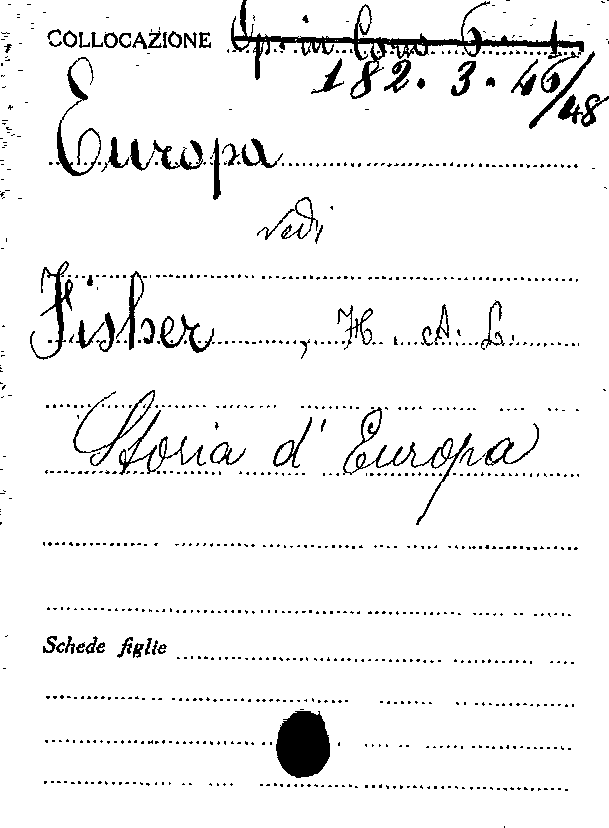 COLLOCAZIONE Op. in
182. 3. 46/48
Europa
vedi
Fisher, H. A. L.
Storia d' Europa
Schede figlie